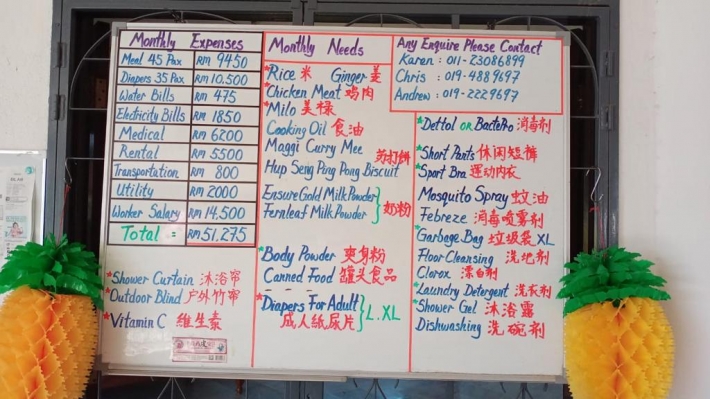 Monthly Expenses
Meal 45 Pax RM 9450
Diapers 35 Pax RM 10.500
Water Bills RM 475
Electricity Bills RM 1850
Medical RM 6200
Rental RM 5500
Transportation RM 800
Utility RM 2000
Worker Salary RM 14,500
Total = RM 51,275
*Shower Curtain 沐浴帘
*Outdoor Blind 户外竹帘
*Vitamin C 维生素
Monthly Needs
*Rice 米 Ginger 姜
*Chicken Meat 鸡肉
*Milo 美禄
Cooking Oil 食油
Maggi Curry Mee
苏打饼
Hup Seng Ping Pong Biscuit
Ensure Gold Milk Powder
Fernleaf Milk Powder
奶粉
*Body Powder 爽身粉
Canned Food 罐头食品
*Diapers For Adult
成人纸尿片
L.XL
Any Enquire Please Contact
Karen : 011-23086899
Chris : 019-4889697
Andrew : 019-2229697
*Dettol or BactePro 消毒剂
*Short Pants 休闲短裤
*Sport Bra 运动内衣
Mosquito Spray 蚊油
Febreze 消毒喷雾剂
*Garbage Bag 垃圾袋 XL
Floor Cleansing 洗地剂
Clorox 漂白剂
*Laundry Detergent 洗衣剂
*Shower Gel 沐浴露
Dishwashing 洗碗剂